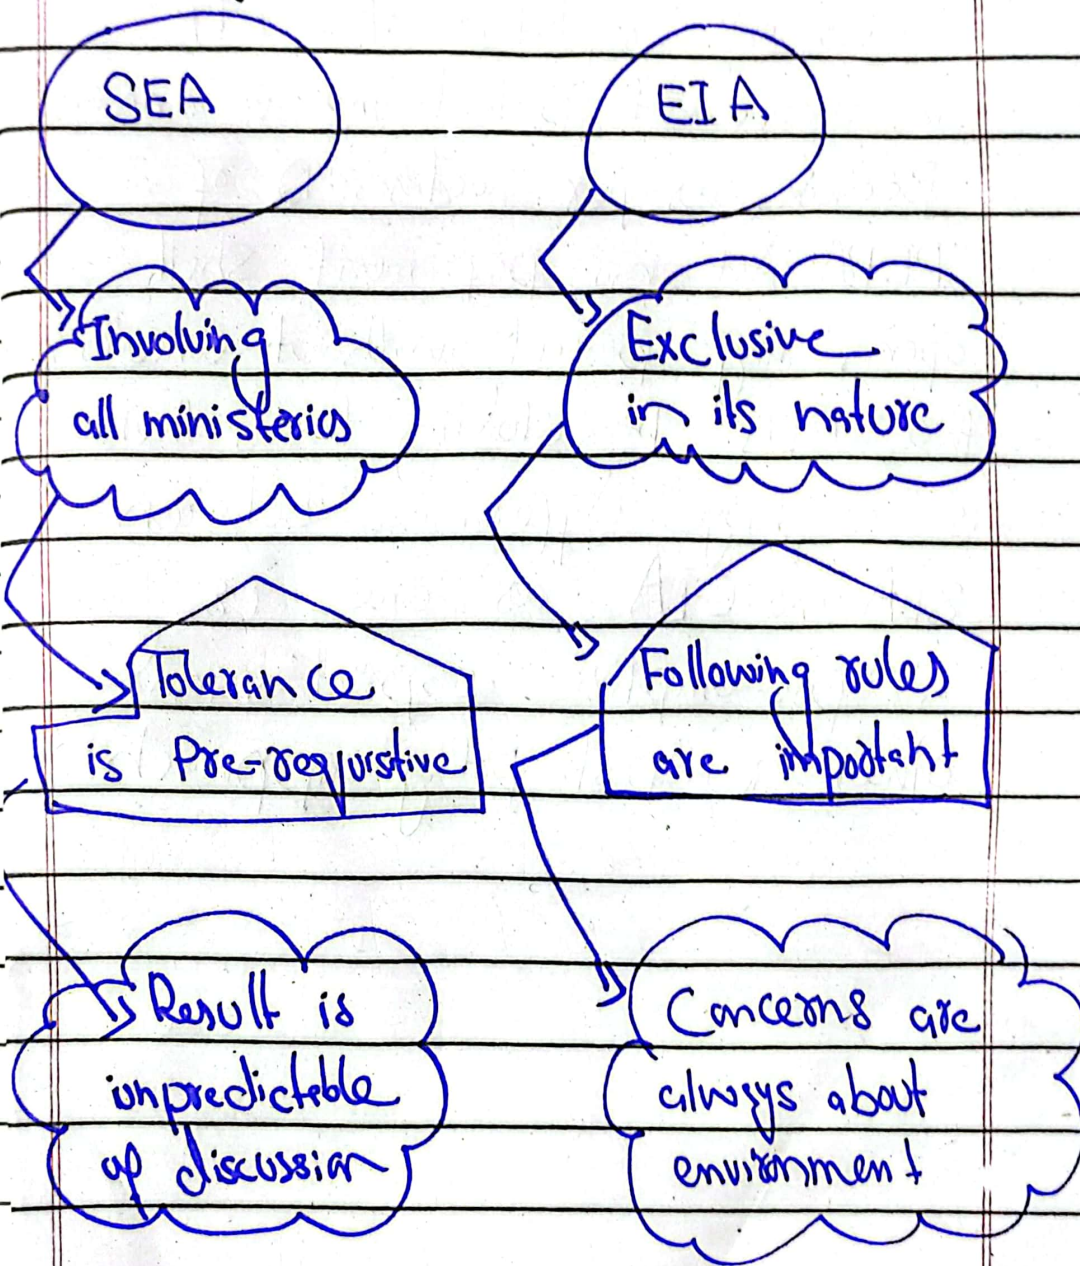 SEA
Involving
all ministeries
Tolerance
is Pre-requistive
Result is
unpredictable
of discussion
EIA
Exclusive
in its nature
Following rules
are important
Concerns are
always about
environment